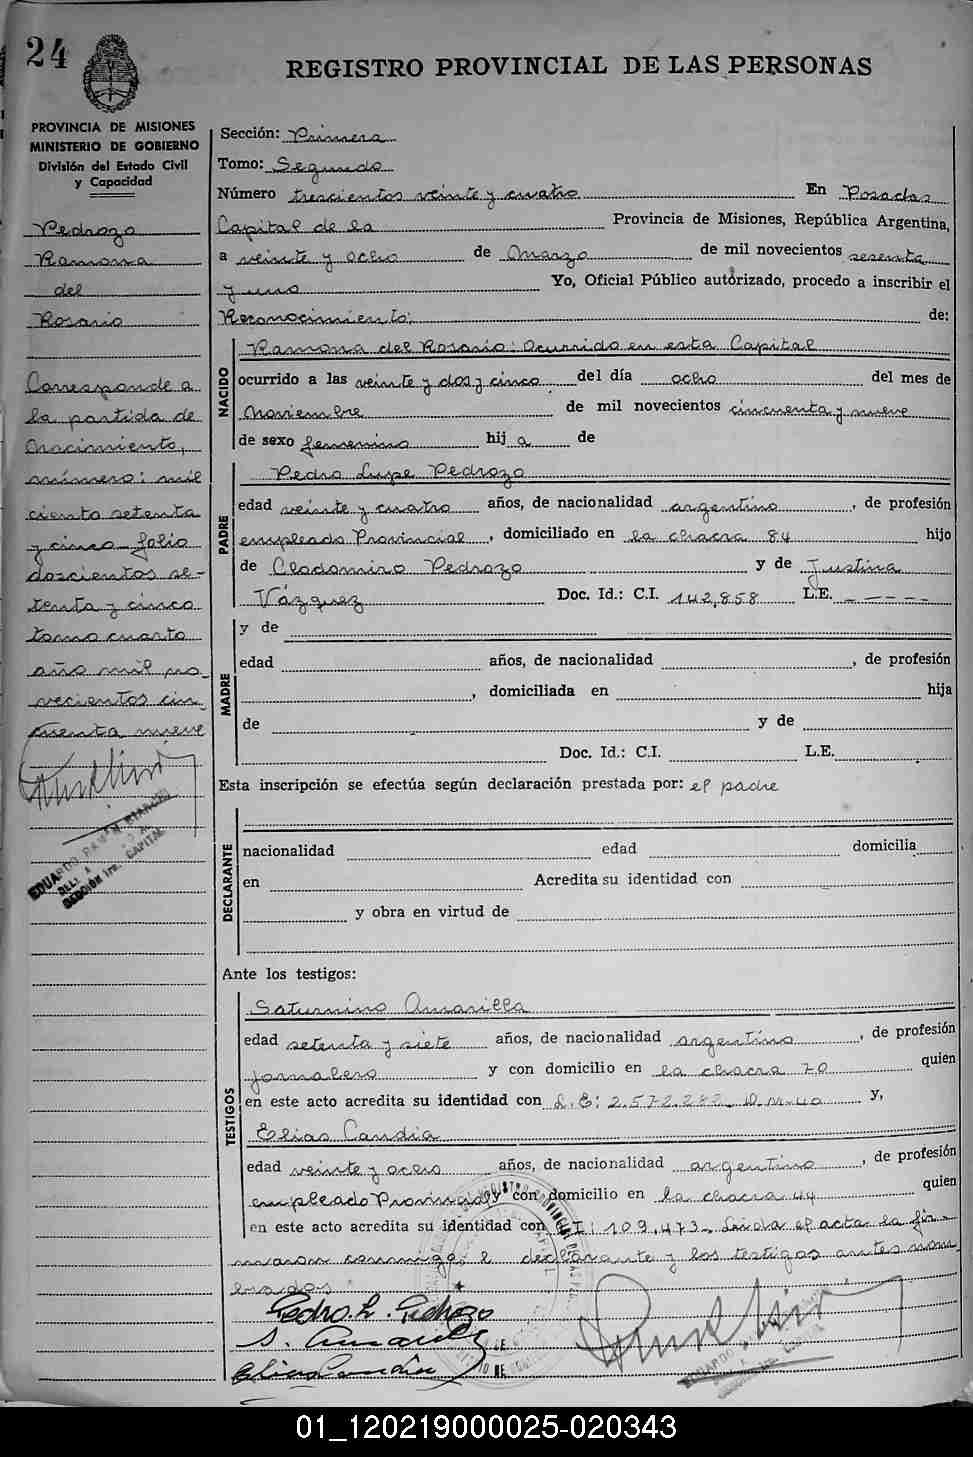 24
REGISTRO PROVINCIAL DE LAS PERSONAS
PROVINCIA DE MISIONES
MINISTERIO DE GOBIERNO
División del Estado Civil
y Capacidad
Pedrozo
Ramona
del
Rosario
Corresponde a
la partida de
Nacimiento,
número: mil
ciento setenta
y cinco - folio
doscientos se-
tenta y cinco
tomo cuarto
año mil no-
vecientos cin-
cuenta nueve
EDUARDO
SECCION 1ra. CAPITAL
Sección: Primera
Tomo: Segundo
Número trescientos veinte y cuatro En Posadas
Capital de la Provincia de Misiones, República Argentina,
a veinte y ocho de Marzo de mil novecientos sesenta
y uno Yo, Oficial Público autorizado, procedo a inscribir el
Reconocimiento: de:
NACIDO
Ramona del Rosario: Ocurrido en esta Capital
ocurrido a las veinte y dos y cinco del día ocho del mes de
Noviembre de mil novecientos cincuenta y nueve
de sexo femenino hij a de
PADRE
Pedro Lupe Pedrozo
edad veinte y cuatro años, de nacionalidad argentino, de profesión
empleado Provincial, domiciliado en la chacra 84 hijo
de Clodomiro Pedrozo y de Justina
Vázquez Doc. Id.: C.I. 142,858 L.E. - - - - -
MADRE
y de
edad años, de nacionalidad , de profesión
, domiciliada en hija
de y de
Doc. Id.: C.I. L.E.
Esta inscripción se efectúa según declaración prestada por: el padre
DECLARANTE
nacionalidad edad domicilia
en Acredita su identidad con
y obra en virtud de
Ante los testigos:
TESTIGOS
Saturnino Amarilla
edad setenta y siete años, de nacionalidad argentino, de profesión
jornalero y con domicilio en la chacra 70 quien
en este acto acredita su identidad con L.E: 2.572.282 D.M.40 y,
Elias Candia
edad veinte y ocho años, de nacionalidad argentino, de profesión
empleado Provincial y con domicilio en la chacra 44 quien
en este acto acredita su identidad con CI: 109.473- Leida el acta la fir-
maron conmigo, el declarante y los testigos antes nom-
brados
Pedro L. Pedrozo
S. Amarilla
Elias Candia
EDUARDO
01_120219000025-020343